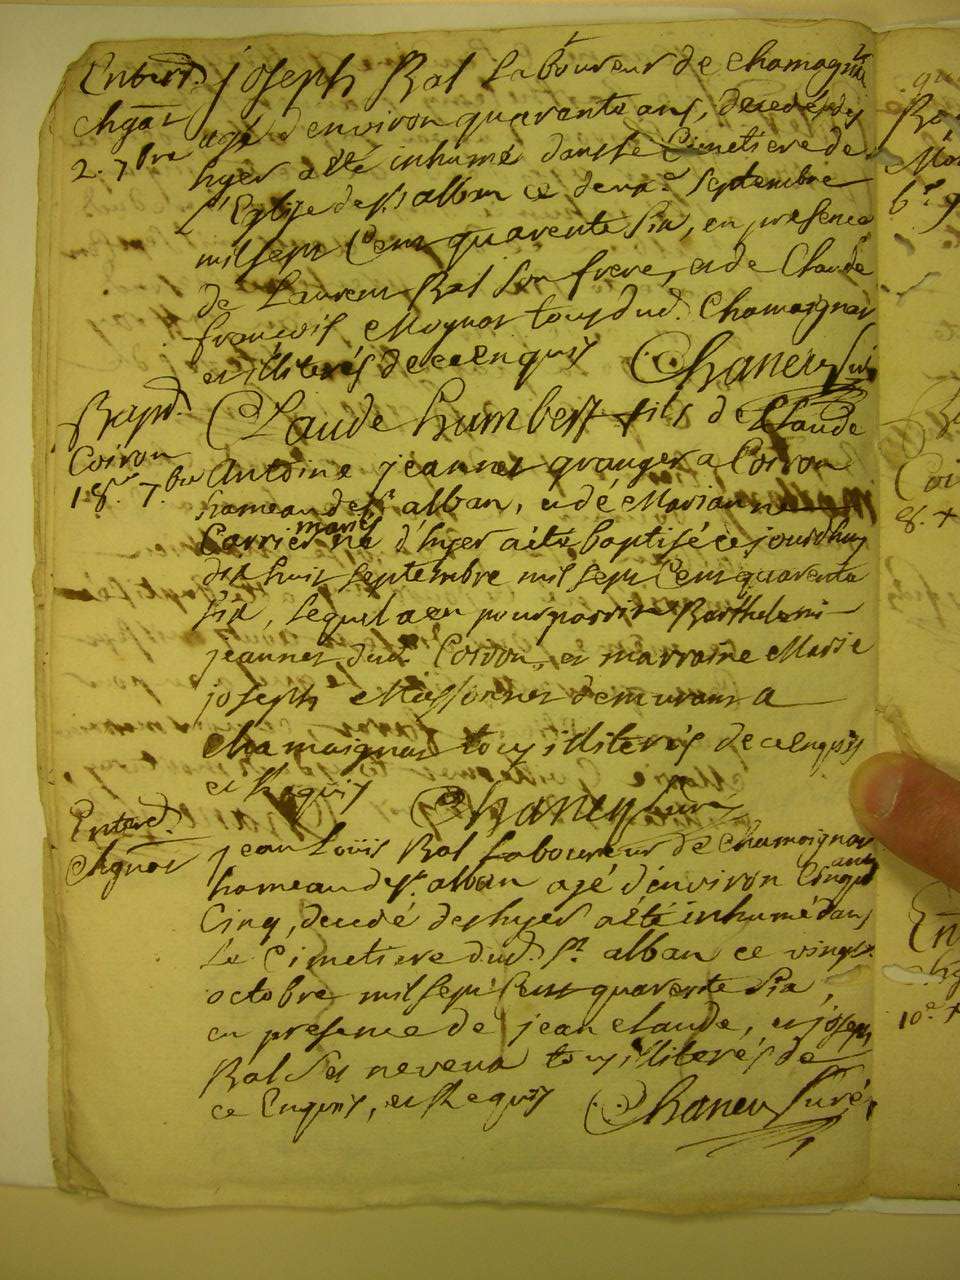 Enterrt.
chgnat
2. 7bre
joseph Ral Laboureur de chamagnat
agé d'environ quarante ans, decedé des
hyer a été inhumé dans Le Cimetiere de
L'Eglise de st alban ce deuxe. septembre
mil sept Cent quarente Six, en presence
de Laurent Ral Son frere, et de Claude
françois Mognat tous dud. Chamoignat
et illiterés de ce enquis Chaneu Curé
Bapt.
Coiron
18e. 7bre
Claude humbert fils de Claude
Antoine jeannet granger a Coiron
hameau de st alban, et dé Marianne
Carrier mariés né d'hyer a été baptisé ce jourdhuy
dix huit septembre mil sept Cent quarente
Six, Lequel a eu pour parrin Barthelemi
jeannet dud. Coiron, et marraine Marie
joseph Massonnet demeurant a
chamoignat tous illiterés de ce enquis
et Requis Chaneu Curé
Enterrt.
Chgnat
jean Loüis Ral Laboureur de Chamoignat
hameau de st. alban agé d'environ Cinqte
Cinq ans, decedé des hyer a été inhumé dans
Le Cimetiere dud. st. alban ce vingt
octobre mil sept Cent quarente Six,
en presence de jean claude, et joseph
Ral Ses neveux tous illiterés de
ce Enquis, et Requis Chaneu Curé